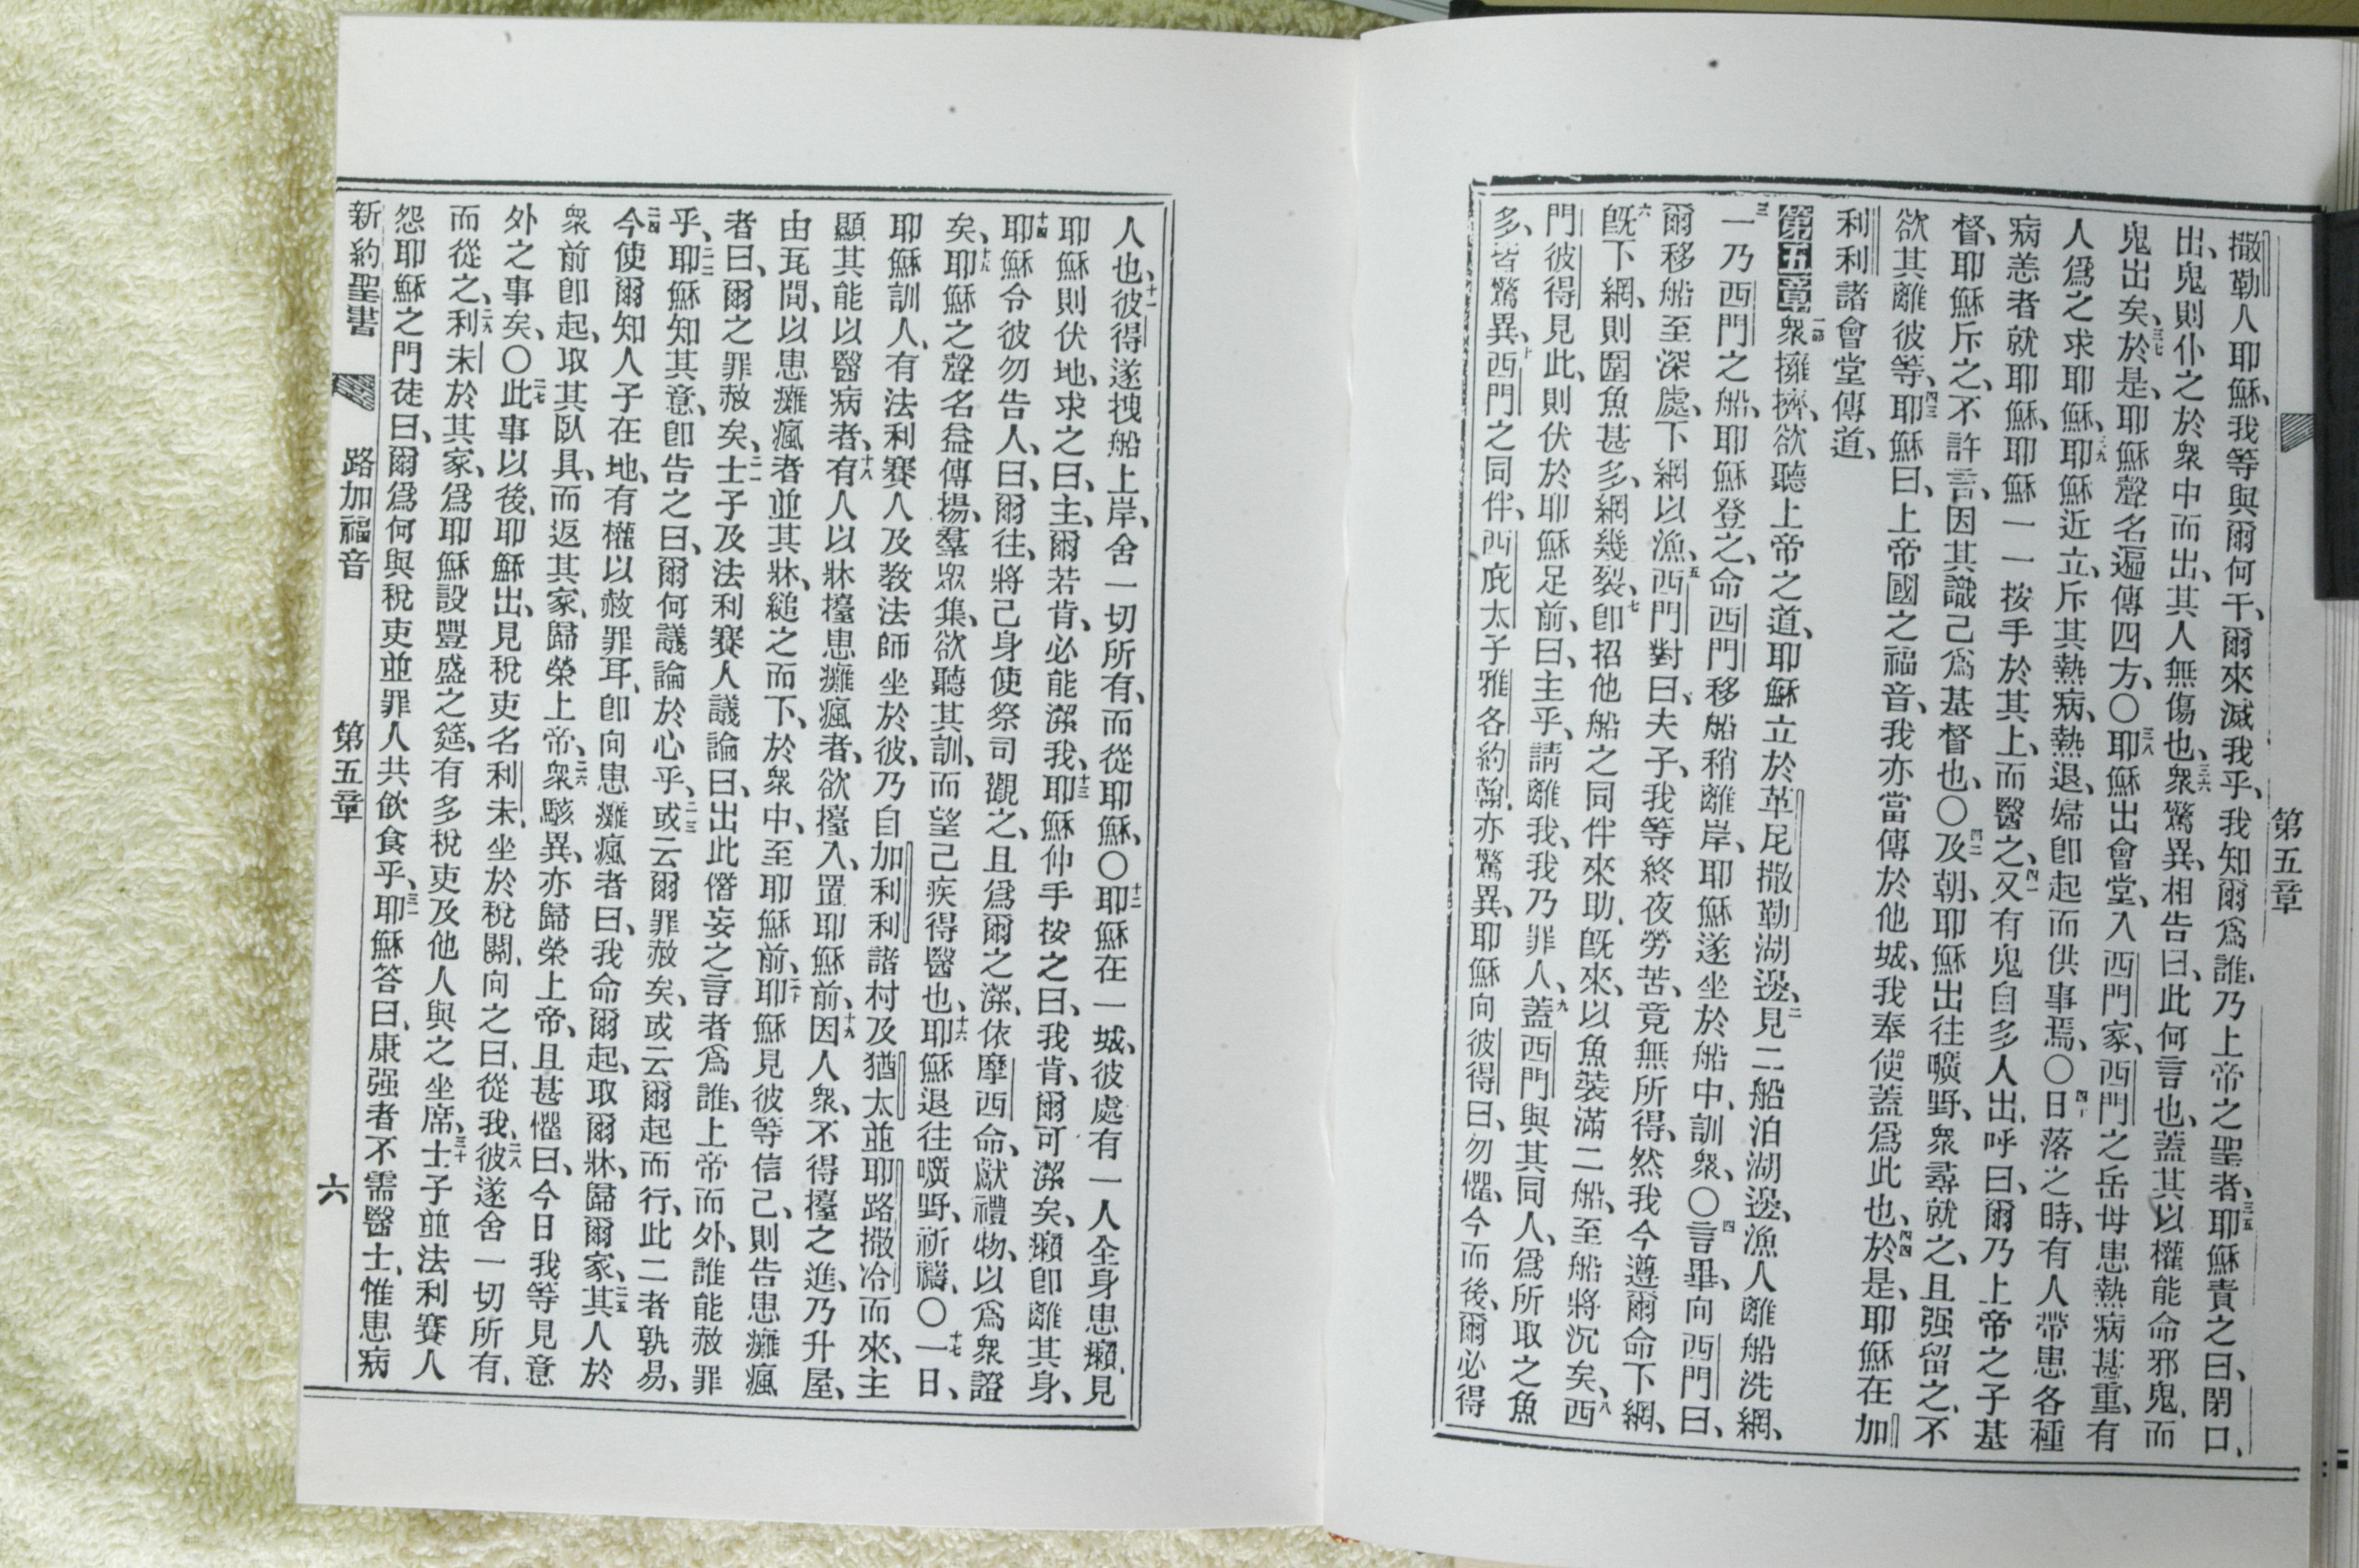 第五章
撒勒人耶穌、我等與爾何干、爾來滅我乎、我知爾爲誰、乃上帝之聖者、三五耶穌責之曰、閉口、
出、鬼則仆之於衆中而出、其人無傷也、三六衆驚異、相告曰、此何言也、蓋其以權能命邪鬼、而
鬼出矣、三七於是、耶穌聲名遍傳四方、〇三八耶穌出會堂、入西門家、西門之岳母患熱病甚重、有
人爲之求耶穌、三九耶穌近立、斥其熱病、熱退、婦卽起而供事焉、〇四十日落之時、有人帶患各種
病恙者就耶穌、耶穌一一按手於其上、而醫之、四一又有鬼自多人出、呼曰、爾乃上帝之子基
督、耶穌斥之、不許言、因其識己爲基督也、〇四二及朝、耶穌出往曠野、衆尋就之、且强留之、不
欲其離彼等、四三耶穌曰、上帝國之福音、我亦當傳於他城、我奉使蓋爲此也、四四於是、耶穌在加
利利諸會堂傳道、
第五章 一節衆擁擠、欲聽上帝之道、耶穌立於革尼撒勒湖邊、二見二船泊湖邊、漁人離船洗網、
三一乃西門之船、耶穌登之、命西門移船稍離岸、耶穌遂坐於船中、訓衆、〇四言畢、向西門曰、
爾移船至深處、下網以漁、五西門對曰、夫子、我等終夜勞苦、竟無所得、然我今遵爾命下網、
六旣下網、則圍魚甚多、網幾裂、七卽招他船之同伴來助、旣來、以魚裝滿二船、至船將沉矣、八西
門彼得見此、則伏於耶穌足前、曰、主乎、請離我、我乃罪人、九蓋西門與其同人、爲所取之魚
多、皆驚異、十西門之同伴、西庇太子雅各約翰、亦驚異、耶穌向彼得曰、勿懼、今而後、爾必得
人也、十一彼得遂拽船上岸、舍一切所有、而從耶穌、〇十二耶穌在一城、彼處有一人全身患癩、見
耶穌則伏地、求之曰、主、爾若肯、必能潔我、十三耶穌伸手按之曰、我肯、爾可潔矣、癩卽離其身、
十四耶穌令彼勿告人、曰、爾往、將己身使祭司觀之、且爲爾之潔、依摩西命、獻禮物、以爲衆證
矣、十五耶穌之聲名益傳揚、羣衆集、欲聽其訓、而望己疾得醫也、十六耶穌退往曠野、祈禱、〇十七一日、
耶穌訓人、有法利賽人及敎法師坐於彼、乃自加利利諸村及猶太並耶路撒冷而來、主
顯其能以醫病者、十八有人以牀擡患癱瘋者、欲擡入、置耶穌前、十九因人衆、不得擡之進、乃升屋、
由瓦間、以患癱瘋者並其牀、縋之而下、於衆中、至耶穌前、二十耶穌見彼等信己、則告患癱瘋
者曰、爾之罪赦矣、二一士子及法利賽人議論曰、出此僭妄之言者爲誰、上帝而外、誰能赦罪
乎、二二耶穌知其意、卽告之曰、爾何議論於心乎、二三或云爾罪赦矣、或云爾起而行、此二者孰易、
二四今使爾知人子在地、有權以赦罪耳、卽向患癱瘋者曰、我命爾起、取爾牀、歸爾家、二五其人於
衆前卽起、取其臥具、而返其家、歸榮上帝、二六衆駭異、亦歸榮上帝、且甚懼曰、今日我等見意
外之事矣、〇二七此事以後、耶穌出、見稅吏名利未、坐於稅關、向之曰、從我、二八彼遂舍一切所有、
而從之、二九利未於其家、爲耶穌設豐盛之筵、有多稅吏及他人與之坐席、三十士子並法利賽人
怨耶穌之門徒曰、爾爲何與稅吏並罪人共飲食乎、三一耶穌答曰、康强者不需醫士、惟患病
新約聖書 路加福音 第五章 六